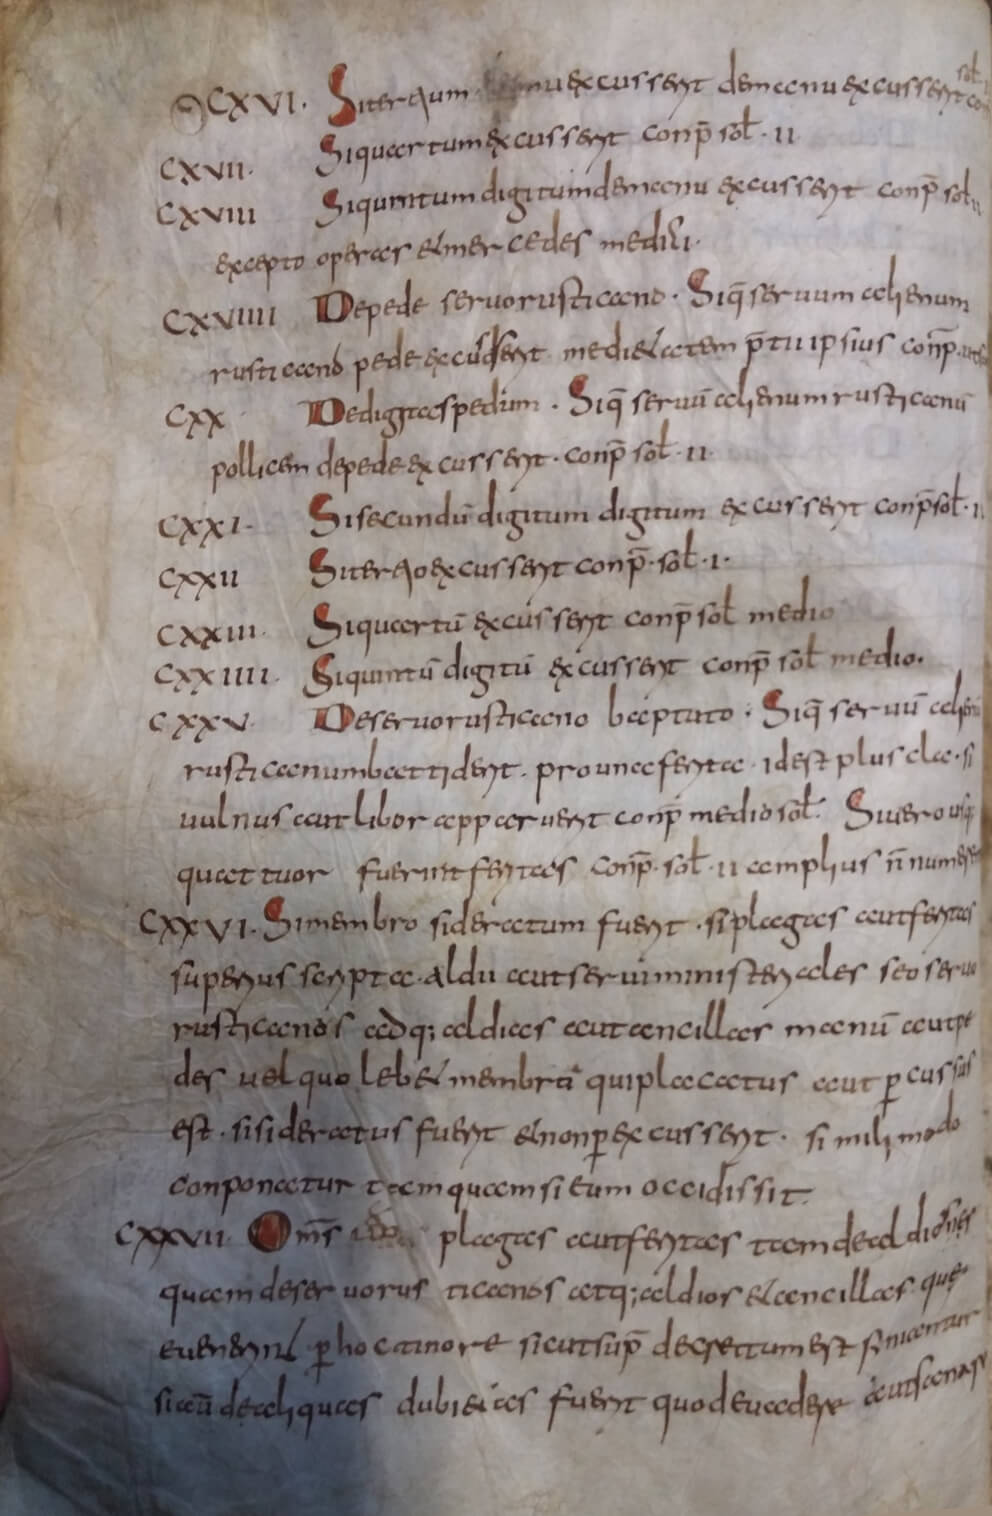 CXVI. Siterqum manu excusserit demanu excusserit sol
CXVII. Siquartum excusserit conp̄ sol · II
CXVIII Siquintum digitum demanu excusserit conp̄ sol II
excepto operas et mercedes medici.
CXVIIII Depede seruorusticano. Siq̄ seruum alienum
rusticano pede excusserit medietatem p̄tii ipsius conp̄.
CXX Dedigitas pedum. Siq̄ seruū alienum rusticanū
pollicem depede excusserit. conp̄ sol · II
CXXI. Sisecundū digitum digitum excusserit conp̄ sol · II
CXXII Siterqo excusserit conp̄ · sol · I ·
CXXIII. Siquartū excusserit conp̄ sol medio
CXXIIII. Siquintū digitū excusserit conp̄ sol medio.
CXXV. Deseruorusticano baeptuto. Siq̄ seruū
rusticanum battiderit. prouna ferita. idest plus cla. si
uulnus autlibor apparuerit conp̄ medio sol. Siuero
quattuor fuerint feritas conp̄ · sol · II amplius n̄
CXXVI. Simembro sideratum fuerit. siplagas autferitas
superius scripta. aldii autserui ministeriales seo
rusticanos adq; aldias autancillas manū aut
des uel quolebet membra quiplacatus aut
est. sisideratus fuerit etnonp excusserit. simili modo
conponatur tamquamsi eum occidissit.
CXXVII. Om̄s plagas autferitas tamdealdiones
quamdeseruorus ticanos atq; aldias etancillas que
euenerint phoc tinore sicutsup̄ decretumest
sicū dealiquas dubietas fuerit quodeuadere autsanas